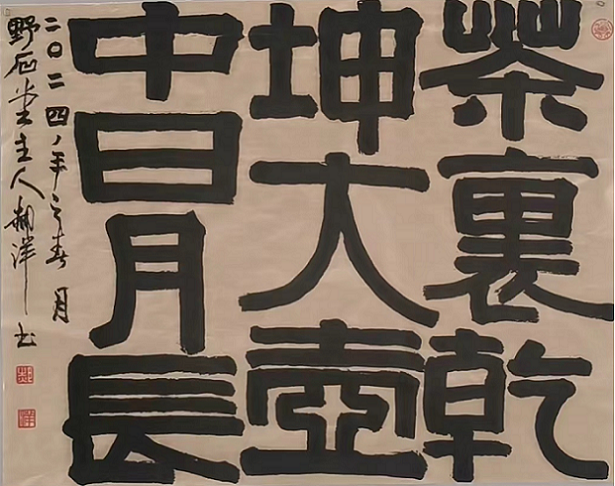 茶裏乾
坤大壺
中日月長
二〇二四年之春月
野石堂主人翰洋书